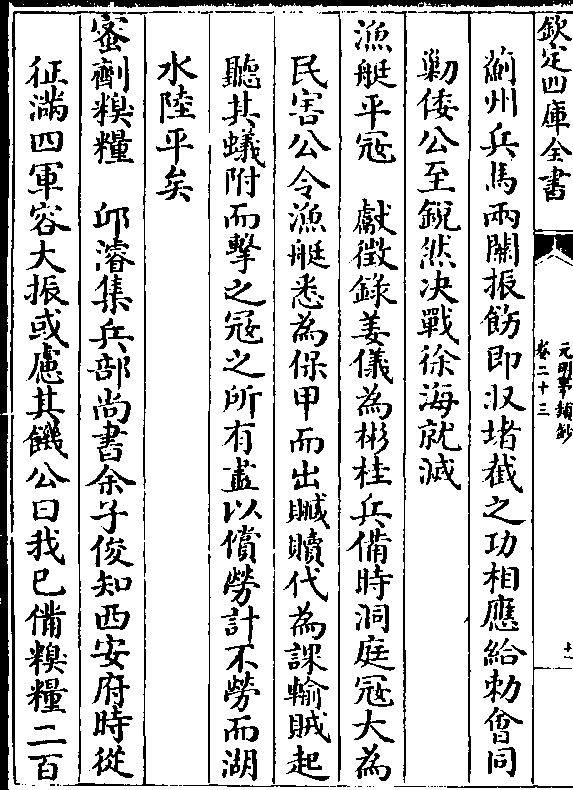 欽定四庫全書
元明事類鈔
卷二十三
十一
薊州兵馬兩關振飭即収堵截之功相應給勅會同
勦倭公至銳然決戰徐海就滅
漁艇平冦　獻徵錄姜儀為彬桂兵備時洞庭冦大為
民害公令漁艇悉為保甲而出贓贖代為課輸賊起
聽其蟻附而擊之冦之所有盡以償勞計不勞而湖
水陸平矣
蜜劑糗糧　邱濬集兵部尚書余子俊知西安府時從
征滿四軍容大振或慮其饑公曰我已備糗糧二百